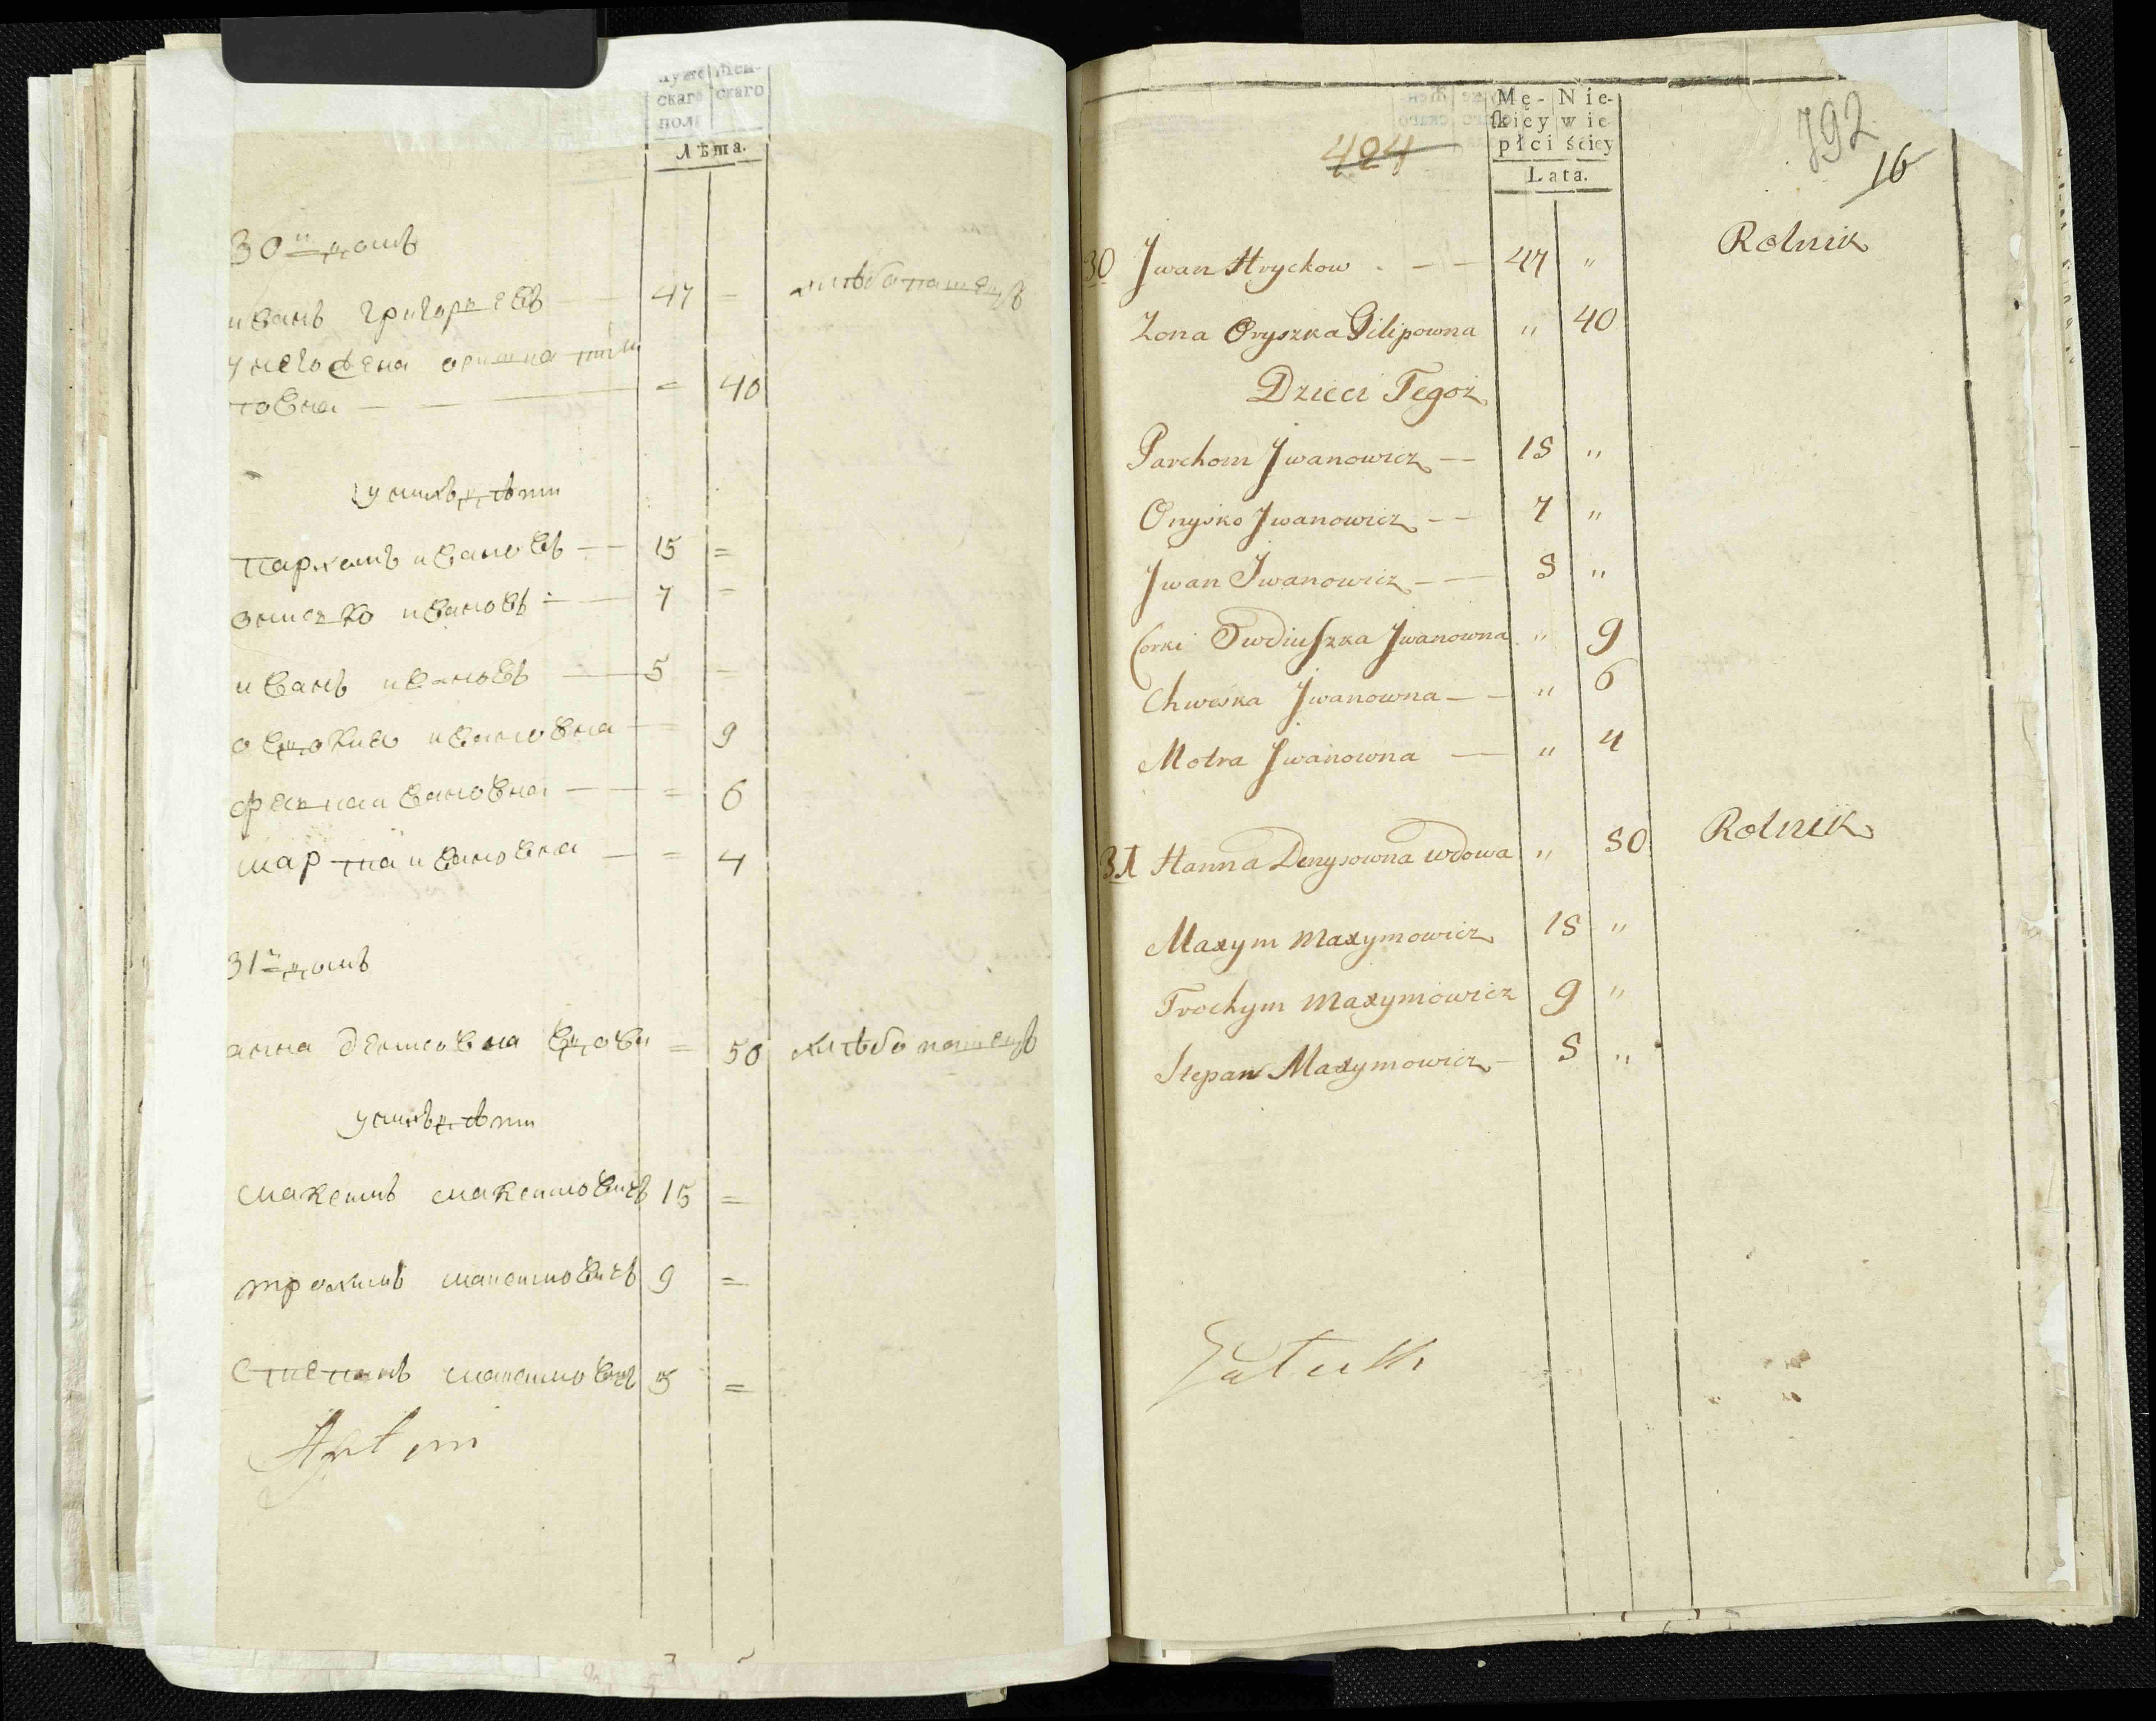 скаго скаго
полу
Лѣта.
30й домъ
иванъ григорьевъ — 47 — хлѣбопашецъ
у него жена оришка пили
повна — = 40
у нихъ дѣти
пархомъ ивановъ — 15 =
онисько ивановъ — 7 =
иванъ ивановъ — 5 —
овдокия ивановна — = 9
феська ивановна — = 6
мартa ивановна — = 4
31й домъ
анна денисовна вдова = 50 хлѣбопашецъ
у нихъ дѣти
максимъ максимовичъ 15 =
трохимъ максимовичъ 9 =
степанъ максимовичъ 5 =
Antoni
792
16
424
Mę- Nie-
ſkiey wie
płci ściey
Lata.
30 Jwan Hryckow . — — 47 " Rolnik
Zona Oryszka Pilipowna " 40
Dzieci Tegoż
Parchom Jwanowicz — 15 "
Onysko Jwanowicz — 7 "
Jwan Jwanowicz — 5 "
Corki Owdiuszka Jwanowna " 9
Chweska Jwanowna — " 6
Motra Jwanowna — " 4
31 Hanna Denysowna wdowa " 50 Rolnik
Maxym Maxymowicz 15 "
Trochym Maxymowicz 9 "
Stepan Maxymowicz — 5 "